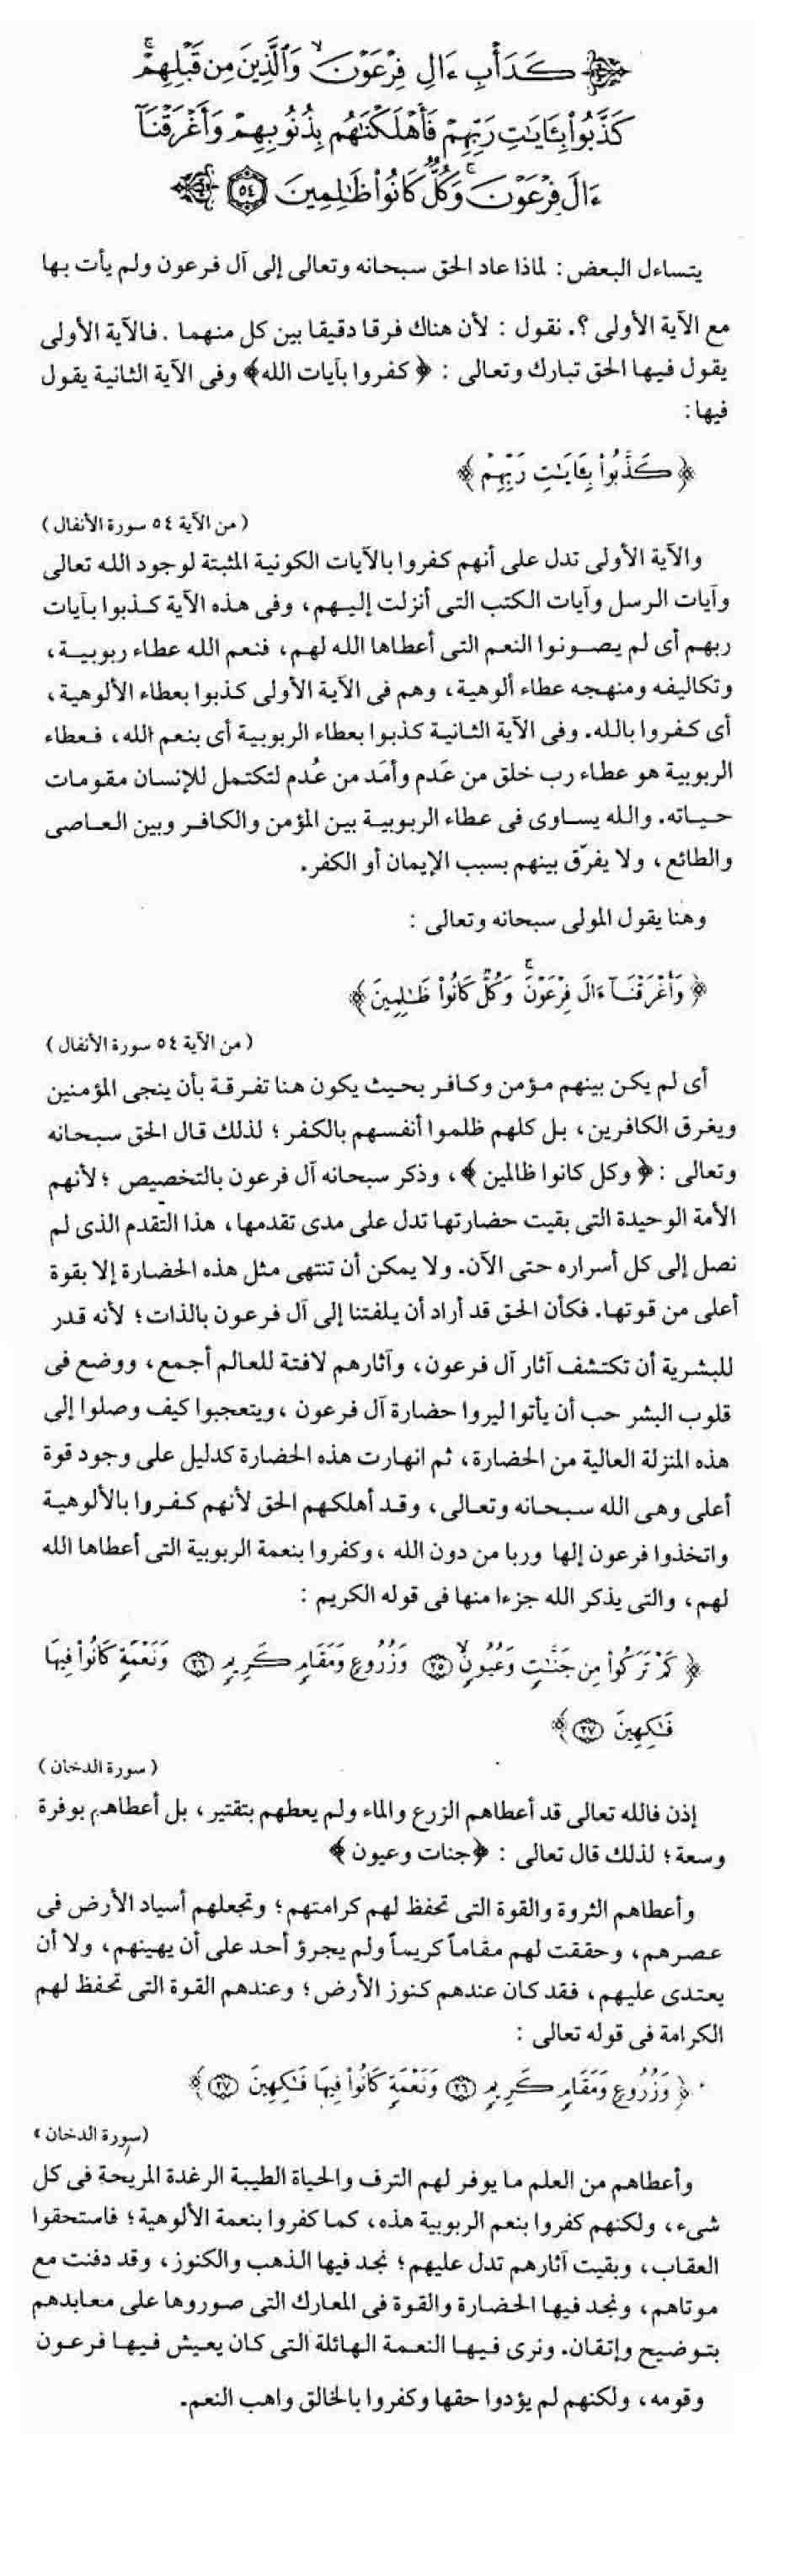 كَدَأْبِ ءَالِ فِرْعَوْنَ ۙ وَٱلَّذِينَ مِن قَبْلِهِمْ ۚ
كَذَّبُوا۟ بِـَٔايَـٰتِ رَبِّهِمْ فَأَهْلَكْنَـٰهُم بِذُنُوبِهِمْ وَأَغْرَقْنَآ
ءَالَ فِرْعَوْنَ ۚ وَكُلٌّ كَانُوا۟ ظَـٰلِمِينَ ٥٤
يتساءل البعض : لماذا عاد الحق سبحانه وتعالى إلى آل فرعون ولم يأت بها
مع الآية الأولى ؟. نقول : لأن هناك فرقا دقيقا بين كل منهما . فالآية الأولى
يقول فيها الحق تبارك وتعالى : ﴿ كفروا بآيات الله﴾ وفى الآية الثانية يقول
فيها :
﴿ كَذَّبُوا۟ بِـَٔايَـٰتِ رَبِّهِمْ ﴾
( من الآية ٥٤ سورة الأنفال )
والآية الأولى تدل على أنهم كفروا بالآيات الكونية المثبتة لوجود الله تعالى
وآيات الرسل وآيات الكتب التى أنزلت إليهم، وفى هذه الآية كذبوا بآيات
ربهم أى لم يصونوا النعم التى أعطاها الله لهم، فنعم الله عطاء ربوبية،
وتكاليفه ومنهجه عطاء ألوهية، وهم فى الآية الأولى كذبوا بعطاء الألوهية،
أى كفروا بالله. وفى الآية الثانية كذبوا بعطاء الربوبية أى بنعم الله، فعطاء
الربوبية هو عطاء رب خلق من عَدم وأمَد من عُدم لتكتمل للإنسان مقومات
حياته. والله يساوى فى عطاء الربوبية بين المؤمن والكافر وبين العاصى
والطائع، ولا يفرّق بينهم بسبب الإيمان أو الكفر.
وهنا يقول المولى سبحانه وتعالى :
﴿ وَأَغْرَقْنَآ ءَالَ فِرْعَوْنَ ۚ وَكُلٌّ كَانُوا۟ ظَـٰلِمِينَ ﴾
( من الآية ٥٤ سورة الأنفال )
أى لم يكن بينهم مؤمن وكافر بحيث يكون هنا تفرقة بأن ينجى المؤمنين
ويغرق الكافرين، بل كلهم ظلموا أنفسهم بالكفر ؛ لذلك قال الحق سبحانه
وتعالى : ﴿ وكل كانوا ظالمين ﴾، وذكر سبحانه آل فرعون بالتخصيص ؛ لأنهم
الأمة الوحيدة التى بقيت حضارتها تدل على مدى تقدمها، هذا التقدم الذى لم
نصل إلى كل أسراره حتى الآن. ولا يمكن أن تنتهى مثل هذه الحضارة إلا بقوة
أعلى من قوتها. فكأن الحق قد أراد أن يلفتنا إلى آل فرعون بالذات؛ لأنه قدر
للبشرية أن تكتشف آثار آل فرعون، وآثارهم لافتة للعالم أجمع، ووضع فى
قلوب البشر حب أن يأتوا ليروا حضارة آل فرعون ،ويتعجبوا كيف وصلوا إلى
هذه المنزلة العالية من الحضارة، ثم انهارت هذه الحضارة كدليل على وجود قوة
أعلى وهى الله سبحانه وتعالى، وقد أهلكهم الحق لأنهم كفروا بالألوهية
واتخذوا فرعون إلها وربا من دون الله ،وكفروا بنعمة الربوبية التى أعطاها الله
لهم، والتى يذكر الله جزءا منها فى قوله الكريم :
﴿ كَمْ تَرَكُوا۟ مِن جَنَّـٰتٍ وَعُيُونٍ ۙ ٢٥ وَزُرُوعٍ وَمَقَامٍ كَرِيمٍ ٢٦ وَنَعْمَةٍ كَانُوا۟ فِيهَا
فَـٰكِهِينَ ٢٧ ﴾
( سورة الدخان )
إذن فالله تعالى قد أعطاهم الزرع والماء ولم يعطهم بتقتير، بل أعطاهم بوفرة
وسعة ؛ لذلك قال تعالى : ﴿جنات وعيون ﴾
وأعطاهم الثروة والقوة التى تحفظ لهم كرامتهم؛ وتجعلهم أسياد الأرض فى
عصرهم، وحققت لهم مقاماً كريماً ولم يجرؤ أحد على أن يهينهم، ولا أن
يعتدى عليهم، فقد كان عندهم كنوز الأرض؛ وعندهم القوة التى تحفظ لهم
الكرامة فى قوله تعالى :
﴿ وَزُرُوعٍ وَمَقَامٍ كَرِيمٍ ٢٦ وَنَعْمَةٍ كَانُوا۟ فِيهَا فَـٰكِهِينَ ٢٧ ﴾
(سورة الدخان )
وأعطاهم من العلم ما يوفر لهم الترف والحياة الطيبة الرغدة المريحة فى كل
شىء، ولكنهم كفروا بنعم الربوبية هذه، كما كفروا بنعمة الألوهية؛ فاستحقوا
العقاب، وبقيت آثارهم تدل عليهم؛ نجد فيها الذهب والكنوز، وقد دفنت مع
موتاهم، ونجد فيها الحضارة والقوة فى المعارك التى صوروها على معابدهم
بتوضيح وإتقان. ونرى فيها النعمة الهائلة التى كان يعيش فيها فرعون
وقومه، ولكنهم لم يؤدوا حقها وكفروا بالخالق واهب النعم.